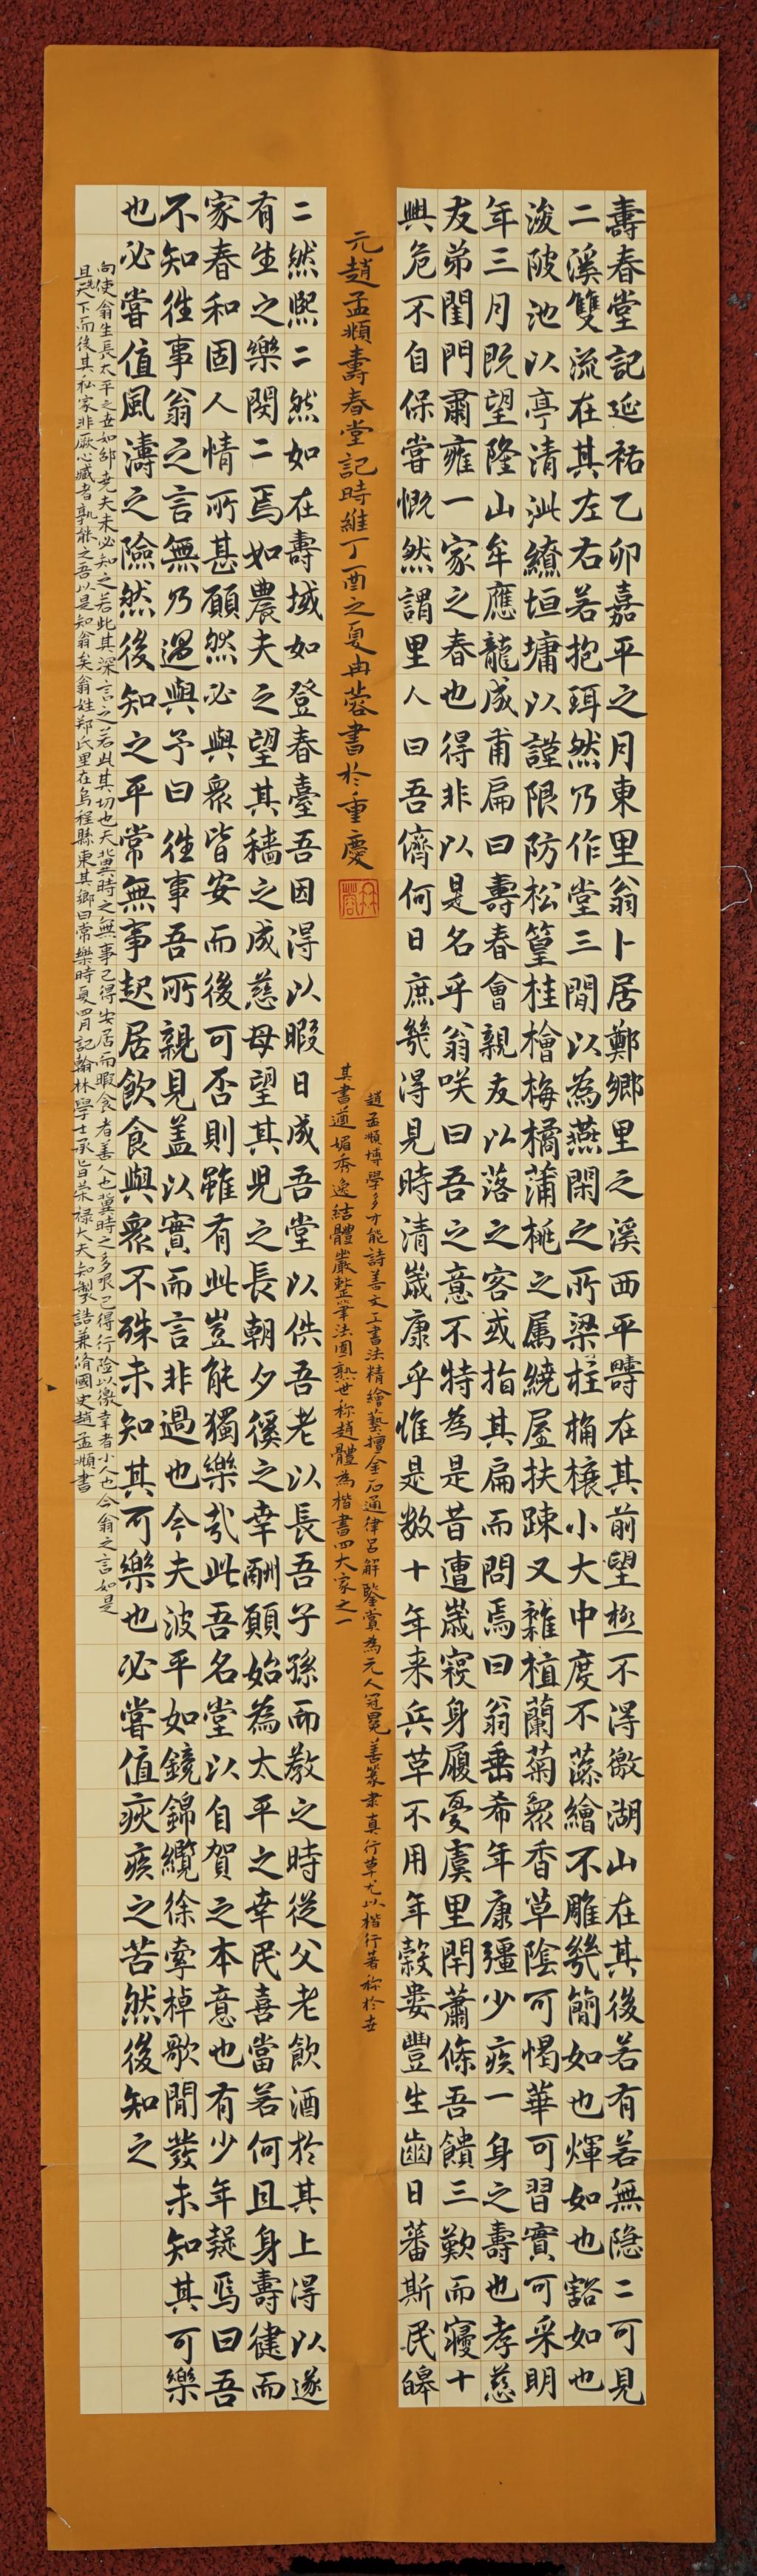 壽春堂記延祐乙卯嘉平之月東里翁卜居鄭鄉里之溪西平疇在其前望極不得徼湖山在其後若有若無隐二可見
二溪雙流在其左右若抱珥然乃作堂三間以為燕閑之所梁柱桷榱小大中度不藻繪不雕幾簡如也煇如也豁如也
浚陂池以亭清泚繚垣墉以謹限防松篁桂檜梅橘蒲桃之属繞屋扶踈又雜植蘭菊衆香草陰可愒華可習實可采明
年三月既望隆山牟應龍成甫扁曰壽春會親友以落之客或指其扁而問焉曰翁垂希年康彊少疾一身之壽也孝慈
友弟閨門肅雍一家之春也得非以是名乎翁咲曰吾之意不特為是昔遭歲祲身履憂虞里閈蕭條吾饋三歎而寢十
興危不自保嘗慨然謂里人曰吾儕何日庶幾得見時清嵗康乎惟是数十年来兵革不用年穀婁豐生齒日蕃斯民皞
元趙孟頫壽春堂記時維丁酉之夏冉蓉書於重慶
趙孟頫博學多才能詩善文工書法精繪藝擅金石通律呂解鑒賞為元人冠冕善篆隶真行草尤以楷行著称於世
其書遒媚秀逸結體嚴整筆法圓熟世称趙體為楷書四大家之一
二然熙二然如在壽域如登春臺吾因得以暇日成吾堂以佚吾老以長吾子孫而教之時従父老飲酒於其上得以遂
有生之樂閔二焉如農夫之望其穡之成慈母望其児之長朝夕徯之幸酬願始為太平之幸民喜當若何且身壽健而
家春和固人情所甚願然必與衆皆安而後可否則雖有此豈能獨樂哉此吾名堂以自賀之本意也有少年疑焉曰吾
不知徃事翁之言無乃過與予曰徃事吾所親見盖以實而言非過也今夫波平如鏡錦纜徐牽棹歌間發未知其可樂
也必嘗值風濤之險然後知之平常無事起居飲食與衆不殊未知其可樂也必嘗值疢疾之苦然後知之
向使翁生長太平之世如邵尭夫未必知之若此其深言之若此其切也夫冀時之無事己得安居而暇食者善人也冀時之多艰己得行险以徼幸者小人也今翁之言如是
且先天下而後其私家非厥心臧者孰能之吾以是知翁矣翁姓郑氏里在烏程縣東其鄉曰常樂時夏四月記翰林學士承旨荣禄大夫知製誥兼脩國史趙孟頫書